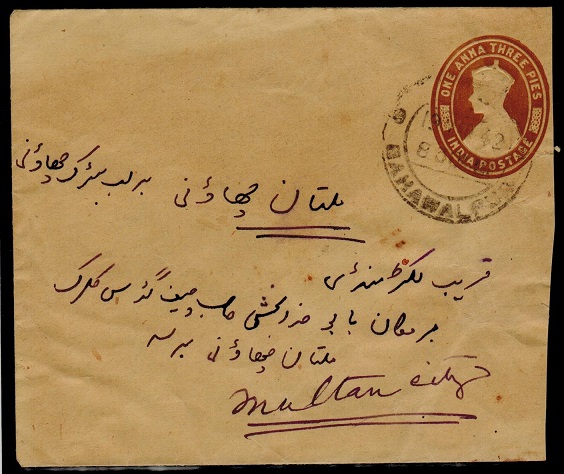 ONE ANNA THREE PIES
INDIA POSTAGE
BAHAWALPUR
ملتان چھاؤنی برلب سڑک چھاؤنی
قریب لکڑ منڈی
بر مکان بابو خدا بخش صاحب چیف گڈس کلرک
ملتان چھاؤنی
Multan city